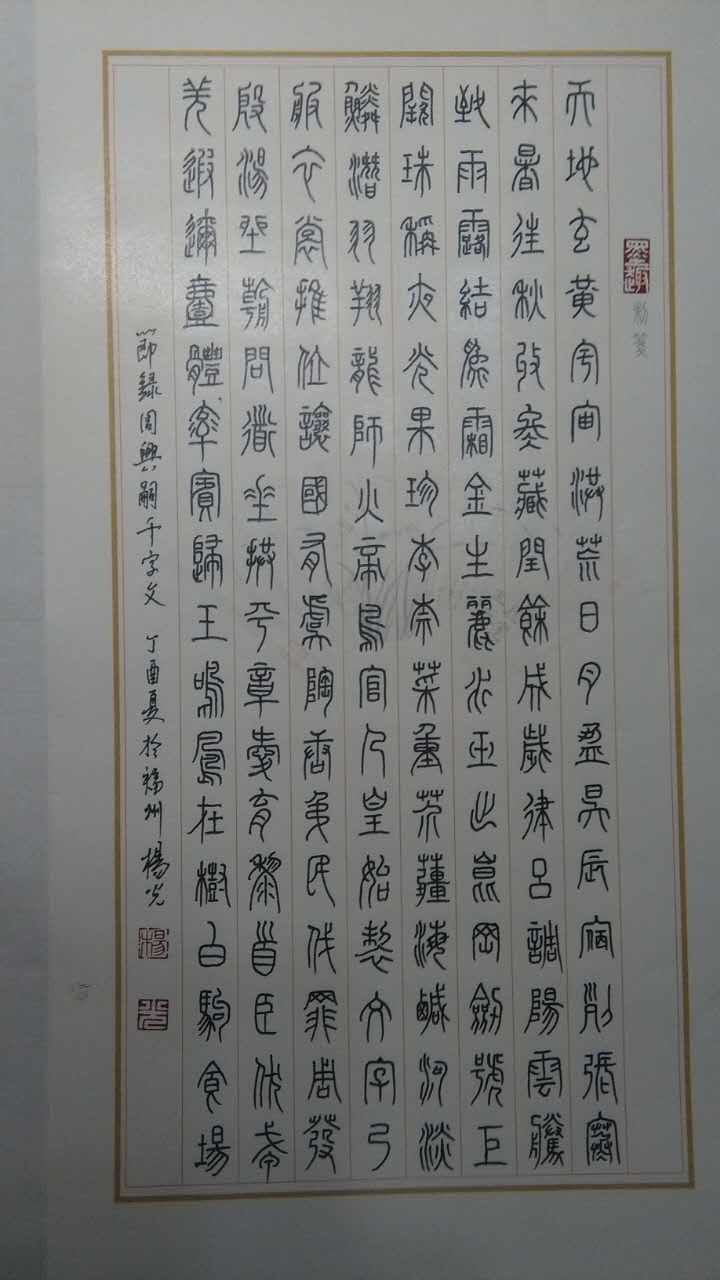 墨趣
天地玄黃宇宙洪荒日月盈昃辰宿列張寒
來暑往秋收冬藏閏餘成歲律呂調陽雲騰
致雨露結為霜金生麗水玉出崑岡劍號巨
闕珠稱夜光果珍李柰菜重芥薑海鹹河淡
鱗潛羽翔龍師火帝鳥官人皇始制文字乃
服衣裳推位讓國有虞陶唐弔民伐罪周發
殷湯坐朝問道垂拱平章愛育黎首臣伏戎
羌遐邇壹體率賓歸王鳴鳳在樹白駒食場
節錄周興嗣千字文 丁酉夏於福州楊光
楊
光